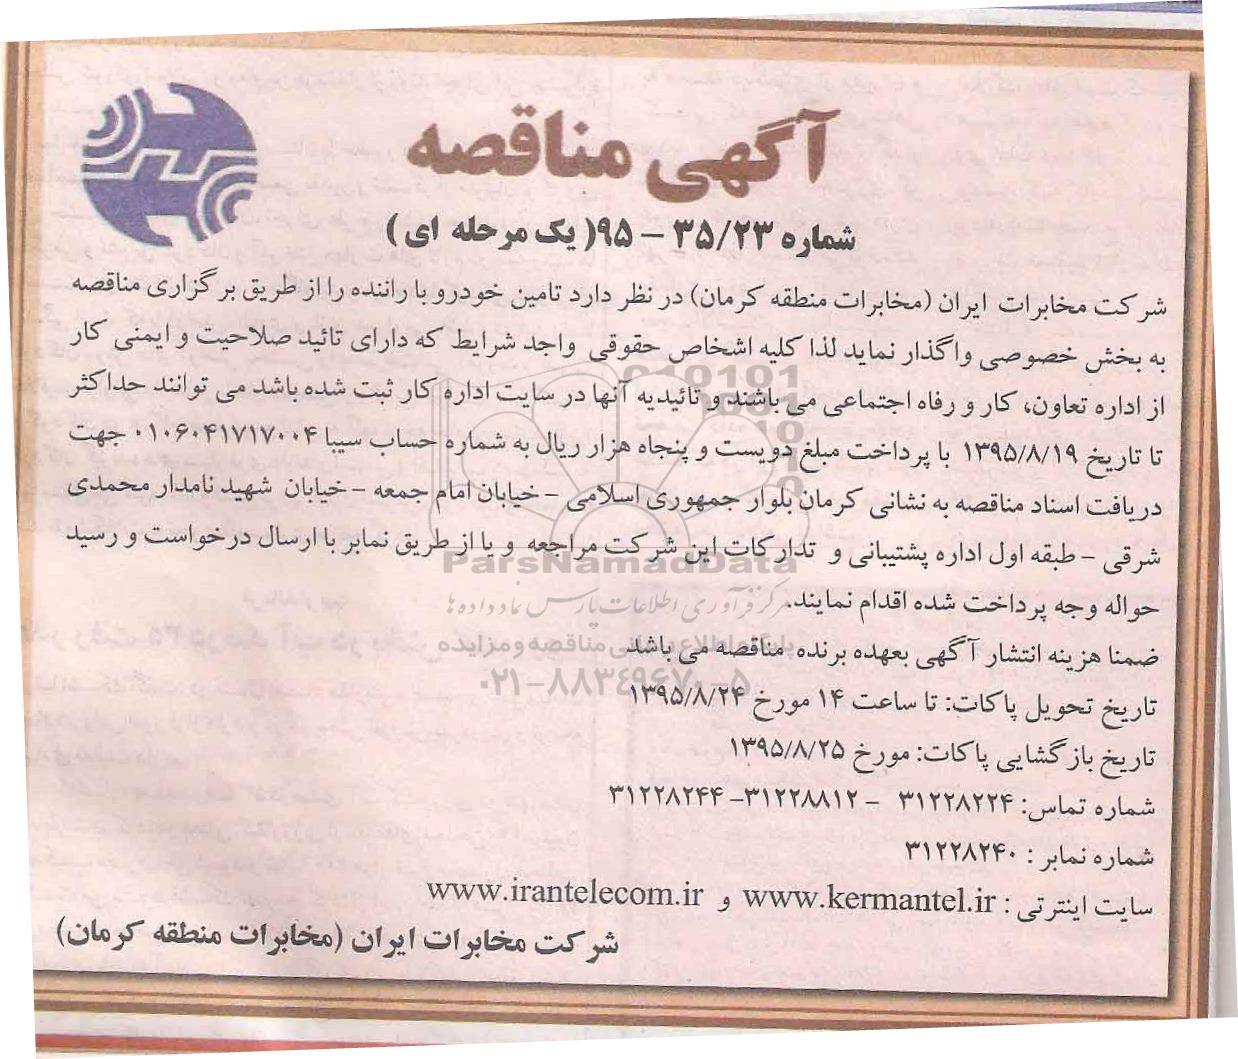 آگهی مناقصه
شماره ۳۵/۲۳ – ۹۵( یک مرحله ای )
شرکت مخابرات ایران (مخابرات منطقه کرمان) در نظر دارد تامین خودرو با راننده را از طریق برگزاری مناقصه
به بخش خصوصی واگذار نماید لذا کلیه اشخاص حقوقی واجد شرایط که دارای تائید صلاحیت و ایمنی کار
از اداره تعاون، کار و رفاه اجتماعی می باشند و تائیدیه آنها در سایت اداره کار ثبت شده باشد می توانند حداکثر
تا تاریخ ۱۳۹۵/۸/۱۹ با پرداخت مبلغ دویست و پنجاه هزار ریال به شماره حساب سیبا ۰۱۰۶۰۴۱۷۱۷۰۰۴ جهت
دریافت اسناد مناقصه به نشانی کرمان بلوار جمهوری اسلامی – خیابان امام جمعه – خیابان شهید نامدار محمدی
شرقی – طبقه اول اداره پشتیبانی و تدارکات این شرکت مراجعه و یا از طریق نمابر با ارسال درخواست و رسید
حواله وجه پرداخت شده اقدام نمایند.
ضمنا هزینه انتشار آگهی بعهده برنده مناقصه می باشد
تاریخ تحویل پاکات: تا ساعت ۱۴ مورخ ۱۳۹۵/۸/۲۴
تاریخ بازگشایی پاکات: مورخ ۱۳۹۵/۸/۲۵
شماره تماس: ۳۱۲۲۸۲۲۴ – ۳۱۲۲۸۸۱۲– ۳۱۲۲۸۲۴۴
شماره نمابر : ۳۱۲۲۸۲۴۰
سایت اینترتی : www.kermantel.ir و www.irantelecom.ir
شرکت مخابرات ایران (مخابرات منطقه کرمان)
ParsNamadData
مرکز فرآوری اطلاعات پارس نماد داده ها
پایگاه اطلاع رسانی مناقصه و مزایده
۰۲۱-۸۸۳۴۹۶۷۰-۵